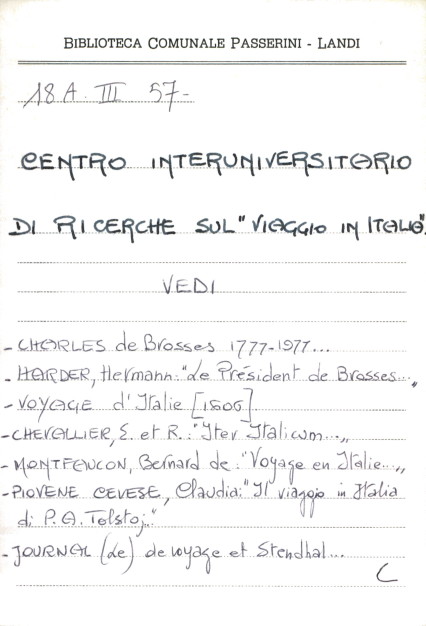 BIBLIOTECA COMUNALE PASSERINI - LANDI
18 A. III 57-
CENTRO INTERUNIVERSITARIO
DI RICERCHE SUL "VIAGGIO IN ITALIA".
VEDI
- CHARLES de Brosses 1777-1977...
- HARDER, Hermann: "Le Président de Brosses..."
- VOYAGE d'Italie [1606].
- CHEVALLIER, E. et R.: "Iter Italicum..."
- MONTFAUCON, Bernard de: "Voyage en Italie..."
- PIOVENE CEVESE, Claudia: "Il viaggio in Italia
di P.A. Tolstoj."
- JOURNAL (Le) de voyage et Stendhal...
C